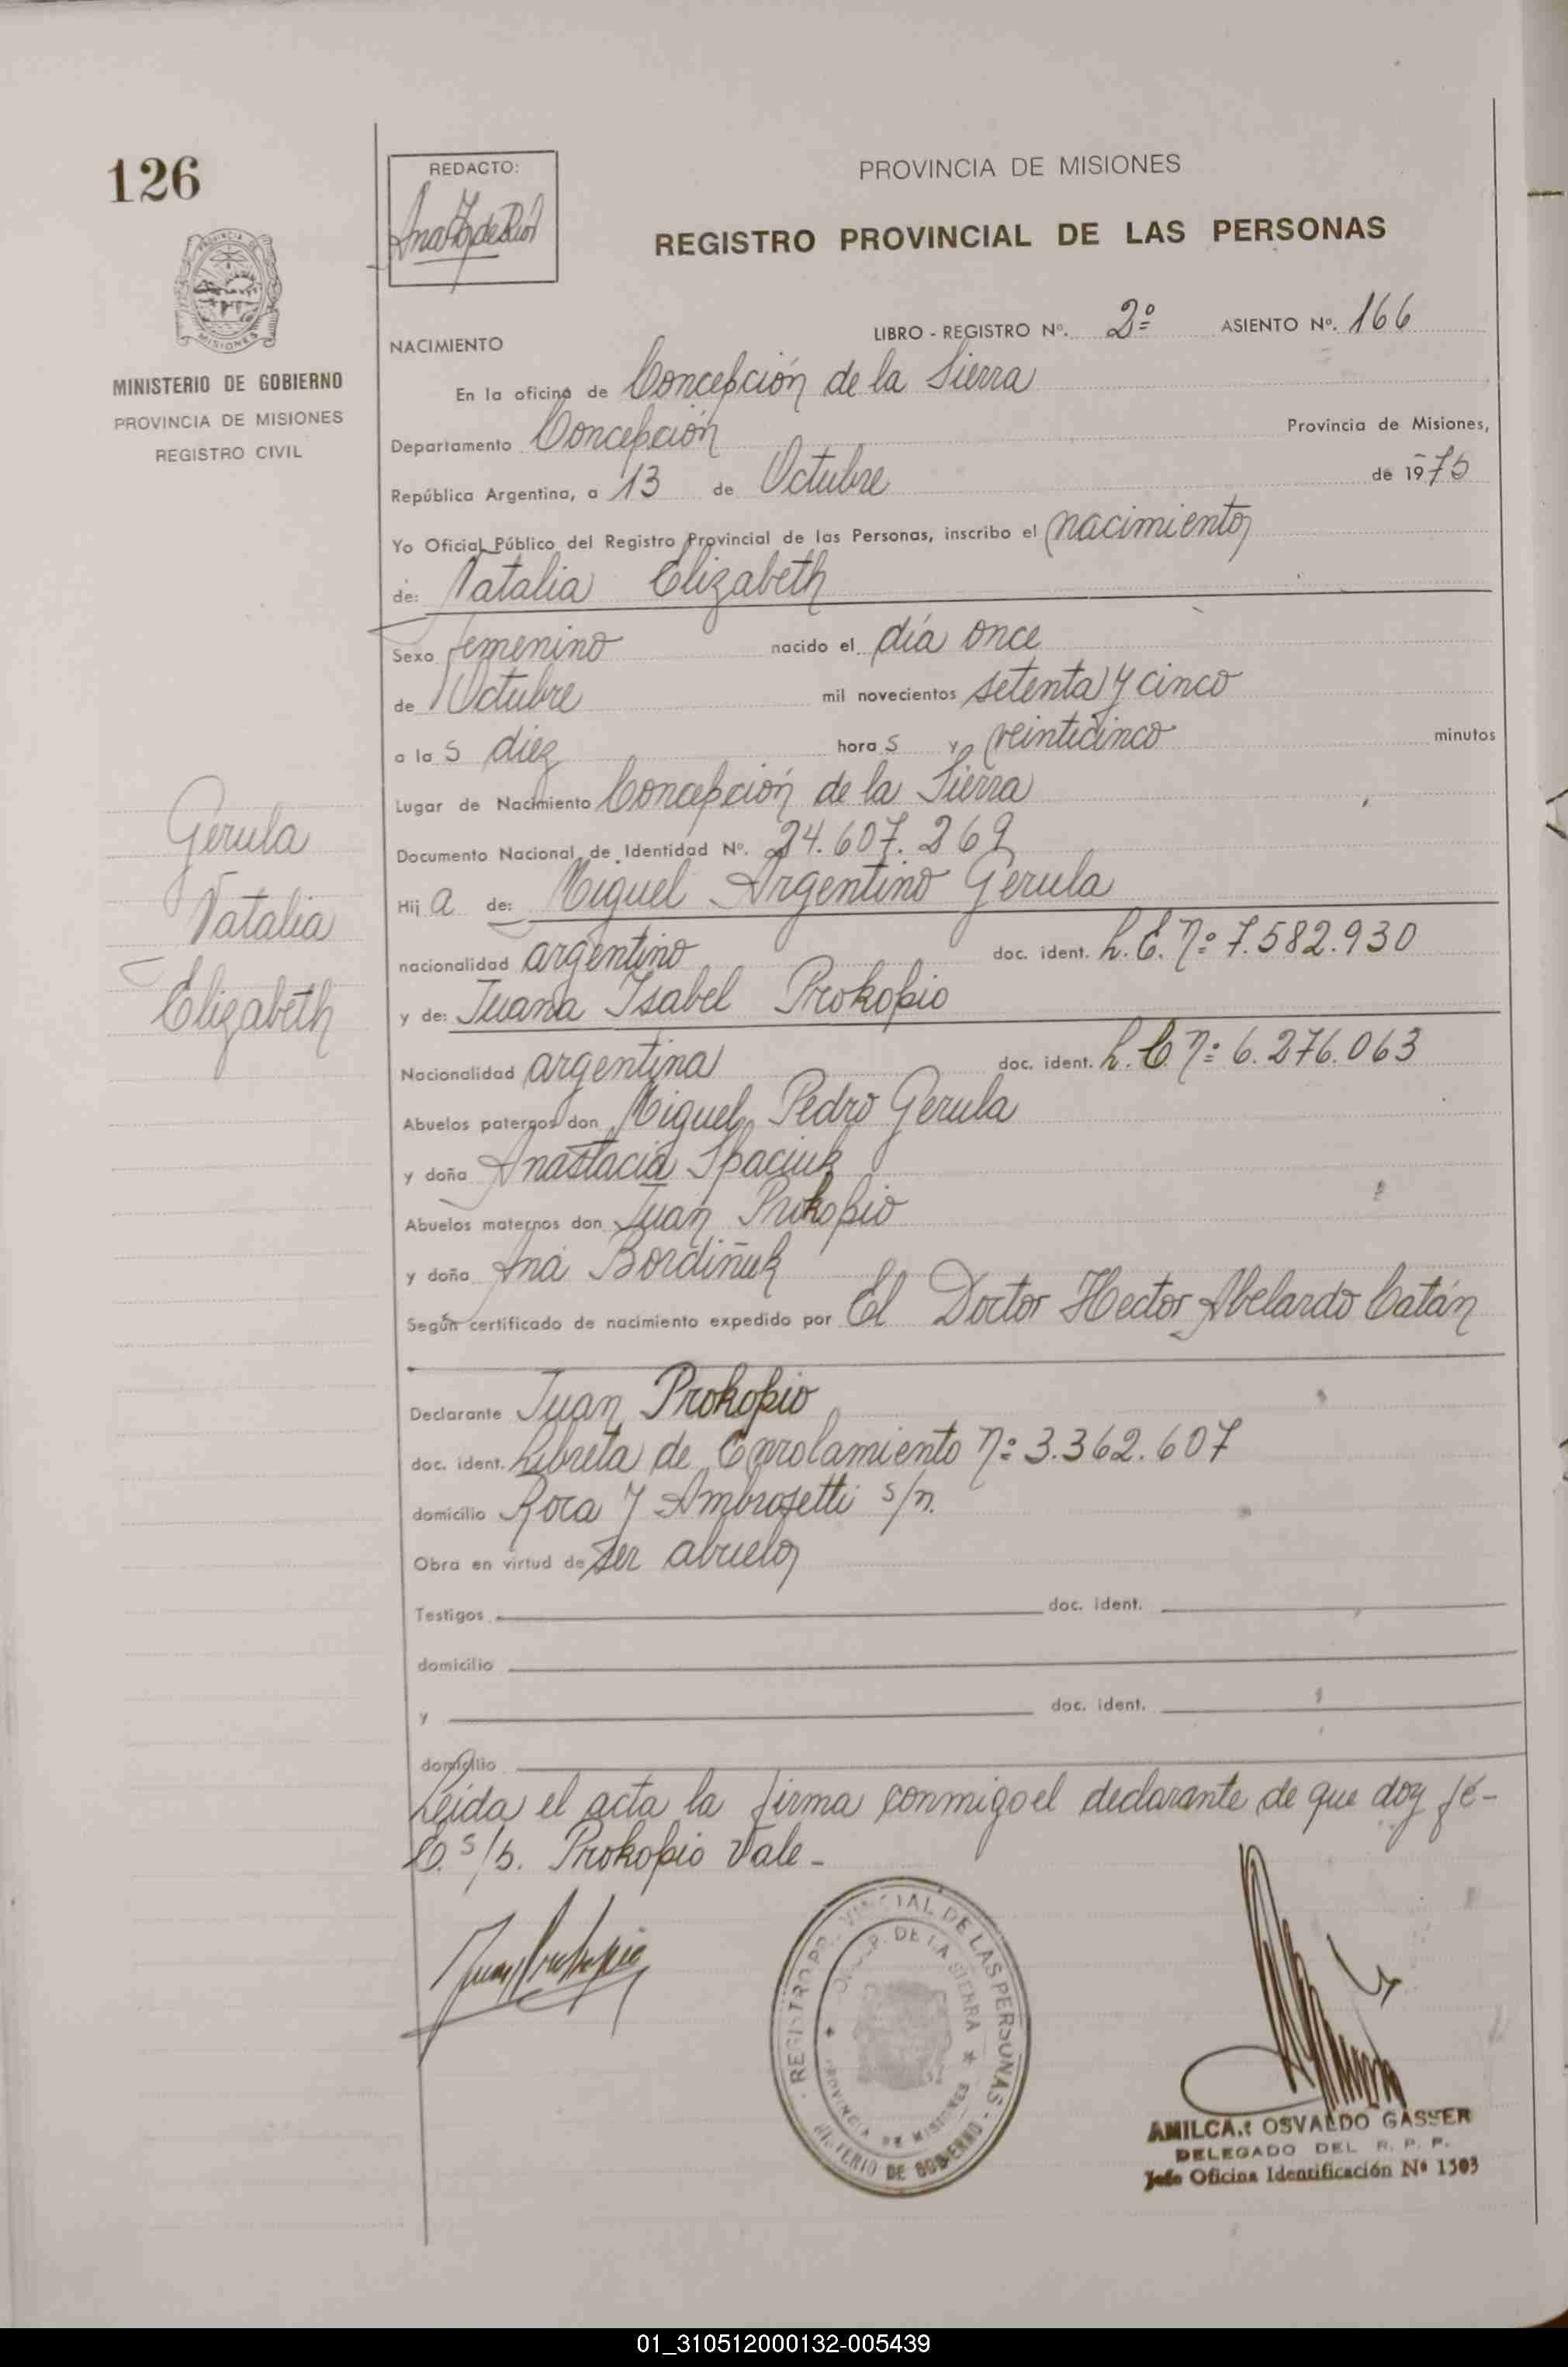 126
REDACTO:
PROVINCIA DE MISIONES
REGISTRO PROVINCIAL DE LAS PERSONAS
MINISTERIO DE GOBIERNO
PROVINCIA DE MISIONES
REGISTRO CIVIL
LIBRO - REGISTRO Nº. 2º ASIENTO Nº. 166
NACIMIENTO
En la oficina de Concepción de la Sierra
Departamento Concepción Provincia de Misiones,
República Argentina, a 13 de Octubre de 1975
Yo Oficial Público del Registro Provincial de las Personas, inscribo el nacimiento
de: Natalia Elizabeth
Sexo femenino nacido el día once
de Octubre mil novecientos setenta y cinco
a las diez horas y veinticinco minutos
Lugar de Nacimiento Concepción de la Sierra
Gerula
Natalia
Elizabeth
Documento Nacional de Identidad Nº. 24.607.269
Hija de: Miguel Argentino Gerula
nacionalidad argentino doc. ident. L. E. nº 7.582.930
y de: Juana Isabel Prokopio
Nacionalidad argentina doc. ident. L. C. nº 6.276.063
Abuelos paternos don Miguel Pedro Gerula
y doña Anastacia Spaciuk
Abuelos maternos don Juan Prokopio
y doña Ana Bordiñuk
Según certificado de nacimiento expedido por El Doctor Hector Abelardo Catán
Declarante Juan Prokopio
doc. ident. Libreta de Enrolamiento nº 3.362.607
domicilio Roca y Ambrosetti s/n.
Obra en virtud de ser abuelo
Testigos doc. ident.
domicilio
y doc. ident.
domicilio
Leída el acta la firma conmigo el declarante de que doy fé-
s/b. Prokopio Vale-
Juan Prokopio
REGISTRO PROVINCIAL DE LAS PERSONAS
DE LA SIERRA
PROVINCIA DE MISIONES
MINISTERIO DE GOBIERNO
AMILCAR OSVALDO GASSER
DELEGADO DEL R. P. P.
Jefe Oficina Identificación Nº 1503
01_310512000132-005439